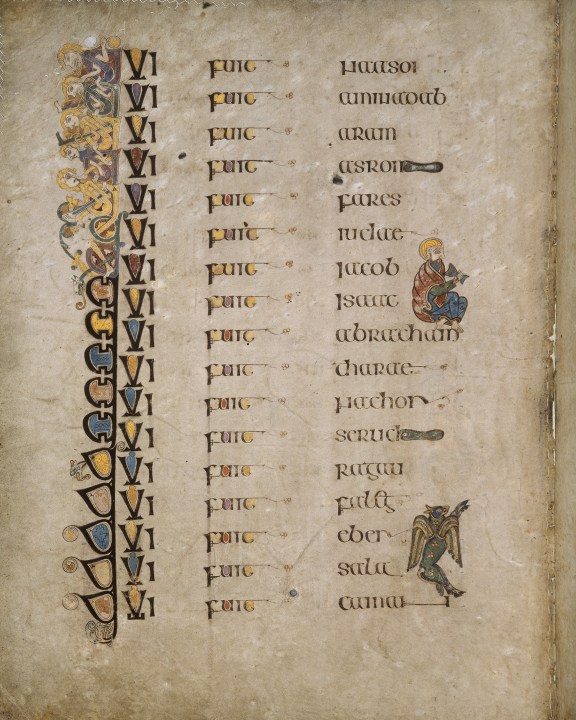 QVI fuit naason
QVI fuit aminadab
QVI fuit aram
QVI fuit asrom
QVI fuit fares
QVI fuit iudae
QVI fuit iacob
QVI fuit isaac
QVI fuit abracham
QVI fuit tharae
QVI fuit nachor
QVI fuit seruch
QVI fuit ragau
QVI fuit faleg
QVI fuit eber
QVI fuit sala
QVI fuit cainan